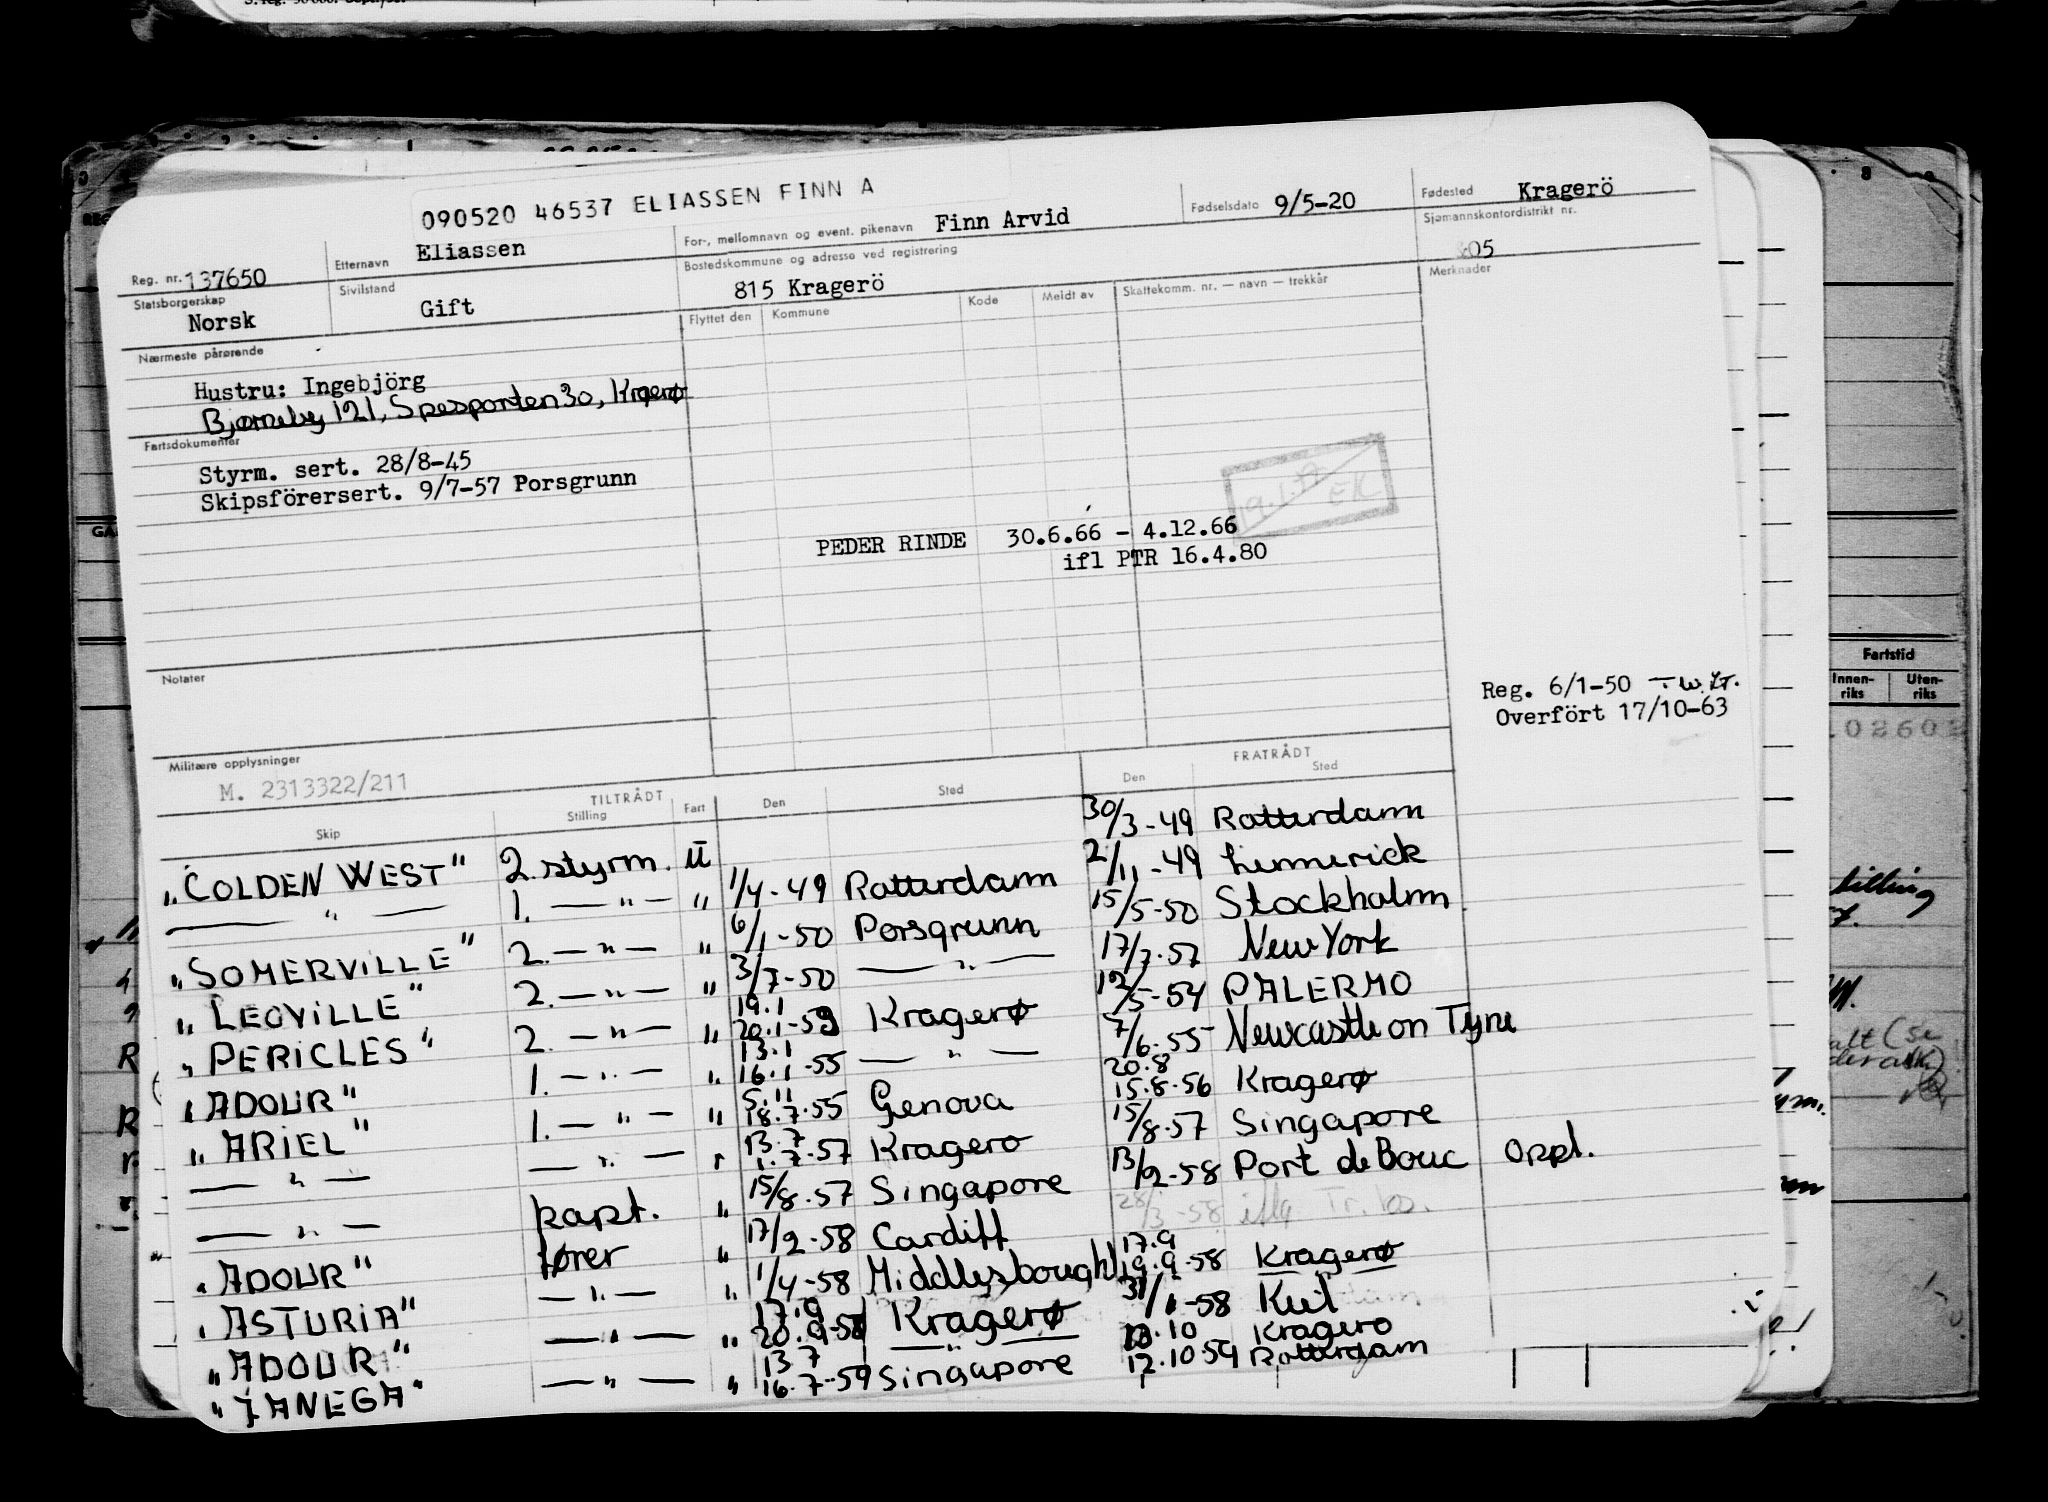 090520 46537 ELIASSEN FINN A
Reg. nr. 137650
Etternavn Eliassen
For-, mellomnavn og event. pikenavn Finn Arvid
Fødselsdato 9/5-20
Fødested Kragerö
Statsborgerskap Norsk
Sivilstand Gift
Bostedskommune og adresse ved registrering
815 Kragerö
Sjømannskontordistrikt nr.
05
Nærmeste pårørende
Hustru: Ingebjörg
Bjørneby 121, Spesporten 30, Kragerø
Flyttet den Kommune Kode Meldt av Skattekomm. nr. — navn — trekkår Merknader
Fartsdokumenter
Styrm. sert. 28/8-45
Skipsförersert. 9/7-57 Porsgrunn
EK
PEDER RINDE 30.6.66 - 4.12.66
ifl PTR 16.4.80
Notater
Reg. 6/1-50
Overfört 17/10-63
Militære opplysninger
M. 2313322/211
TILTRÅDT FRATRÅDT
Skip Stilling Fart Den Sted Den Sted
"COLDEN WEST" 2. styrm. U 30/3-49 Rotterdam
— " — 1. — " — " 1/4-49 Rotterdam 2/11-49 Limerick
"SOMERVILLE" 2. — " — " 6/1-50 Porsgrunn 15/5-50 Stockholm
"LEOVILLE" 2. — " — " 3/7-50 — " — 17/7-57 New York
"PERICLES" 2. — " — " 19.1 20.1-53 Kragerø 12/5-54 PALERMO
"ADOUR" 1. — " — " 13.1 16.1-55 — " — 7/6-55 Newcastle on Tyne
"ARIEL" 1. — " — " 5.11 18.7.55 Genova 20.8 15.8.56 Kragerø
— " — — " — " 13.7 1.7.57 Kragerø 15/8-57 Singapore
— " — kapt. " 15/8.57 Singapore 13/2-58 Port de Bouc Oppl.
"ADOUR" fører " 17/2-58 Cardiff 28/3-58 iflg Tr.
"ASTURIA" — " — " 1/4-58 Middlesbough 17.9 19.9-58 Kragerø
"ADOUR" — " — " 17.9 20.9-58 Kragerø 31/1-58 Kiel
"TANEGA" — " — " 13.7 16.7-59 Singapore 10 Kragero
12.10 59 Rotterdam
Fartstid
Innen-riks Uten-riks
02602